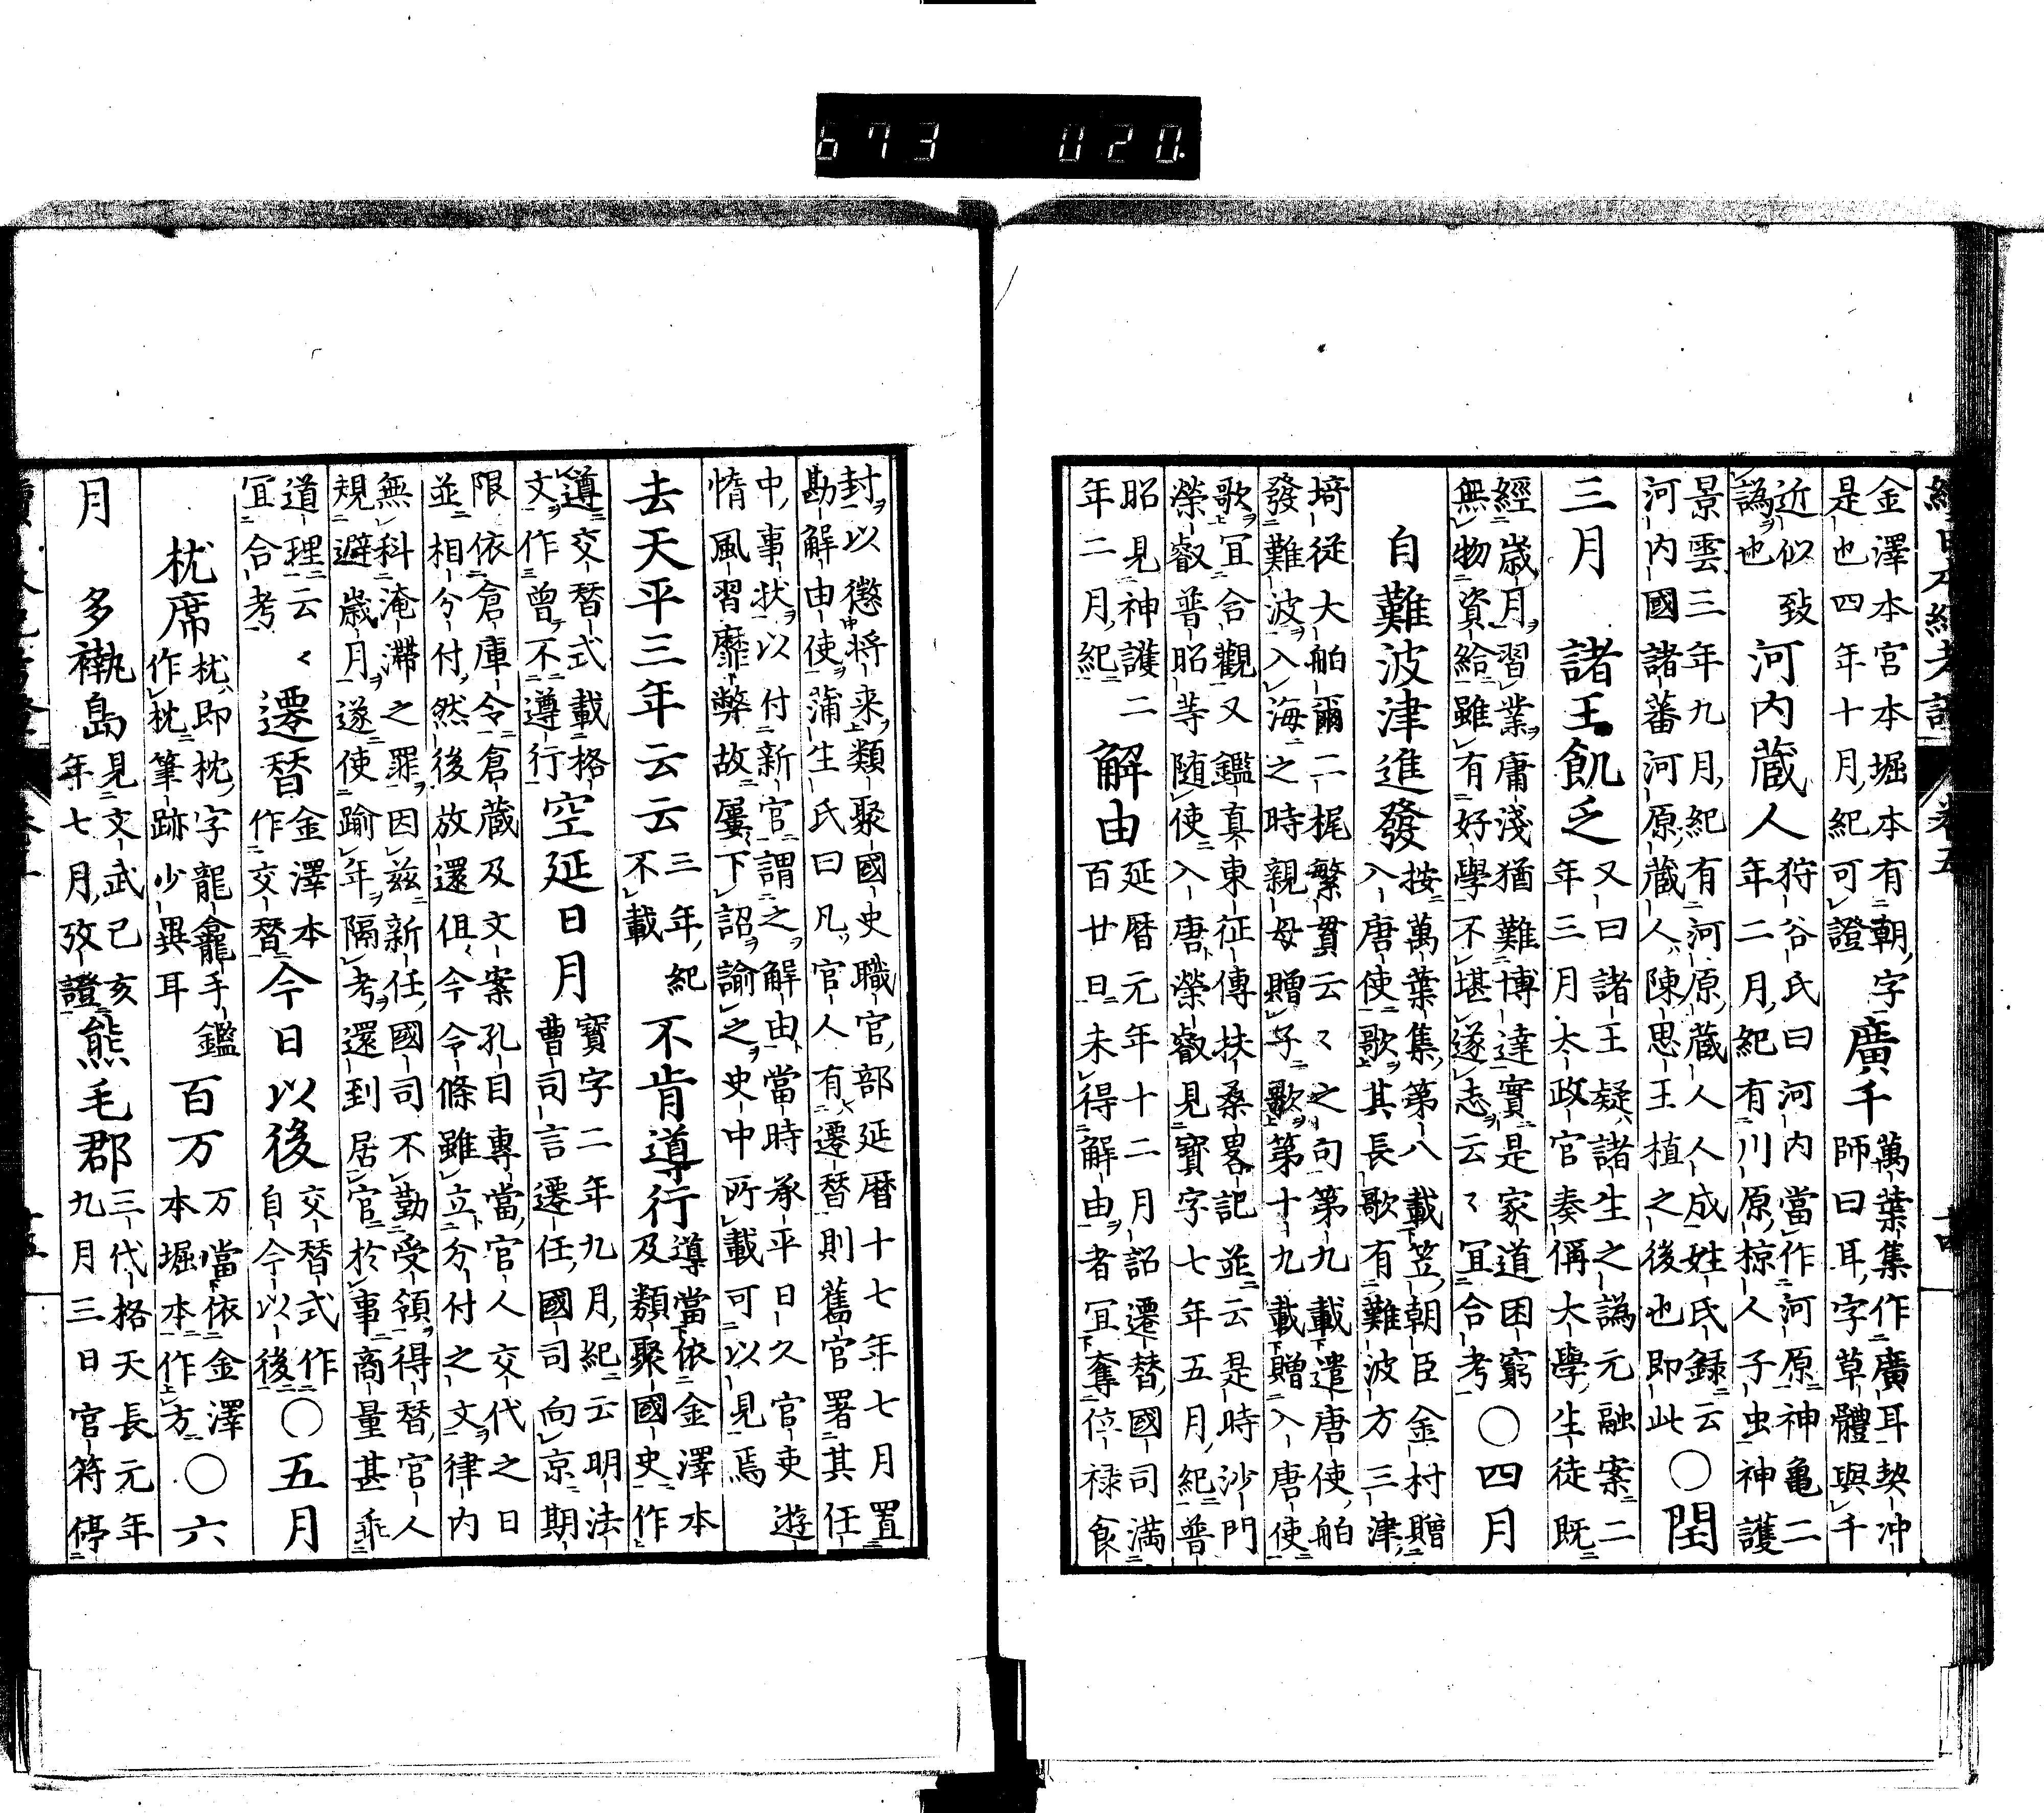 673 020.
續日本紀考證 卷五 十四
金澤本宮本堀本有朝字
是也四年十月紀可證
廣千
萬葉集作廣耳契冲
師曰耳字草體與千
近似致
譌也
河内蔵人
狩谷氏曰河内當作河原神亀二
年二月紀有川原椋人子虫神護
景雲三年九月紀有河原蔵人人成姓氏録云
河内國諸蕃河原蔵人陳思王植之後也即此
〇閏
三月
諸王飢乏
又曰諸王疑諸生之譌元融案二
年三月太政官奏偁大學生徒既
經歳月習業庸淺猶難博達實是家道困窮
無物資給雖有好學不堪遂志云々宜合考
〇四月
自難波津進發
按萬葉集第八載笠朝臣金村贈
入唐使歌其長歌有難波方三津
埼従大舶爾二梶繁貫云々之句第九載遣唐使舶
發難波入海之時親母贈子歌第十九載贈入唐使
歌宜合觀又鑑真東征傳扶桑畧記並云是時沙門
榮叡普昭等随使入唐榮叡見寳字七年五月紀普
昭見神護二
年二月紀
解由
延暦元年十二月詔遷替國司満
百廿日未得解由者宜奪俸禄食
封以懲将来類聚國史職官部延暦十七年七月置
勘解由使蒲生氏曰凡官人有遷替則舊官署其任
中事状以付新官謂之解由當時承平日久官吏遊
惰風習靡弊故屢下詔諭之史中所載可以見焉
去天平三年云云
三年紀
不載
不肯導行
導當依金澤本
及類聚國史作
遵交替式載格
文作曾不遵行
空延日月
寳字二年九月紀云明法
曹司言遷任國司向京期
限依倉庫令倉蔵及文案孔目專當官人交代之日
並相分付然後放還但今令條雖立分付之文律内
無科淹滞之罪因茲新任國司不勤受領得替官人
規避歳月遂使踰年隔考還到居官於事商量甚乖
道理云々
宜合考
遷替
金澤本
作交替
今日以後
交替式作
自今以後
〇五月
枕席
枕即枕字龍龕手鑑
作枕筆跡少異耳
百万
万當依金澤
本堀本作方
〇六
月
多褹島
見文武己亥
年七月攷證
熊毛郡
三代格天長元年
九月三日官符停